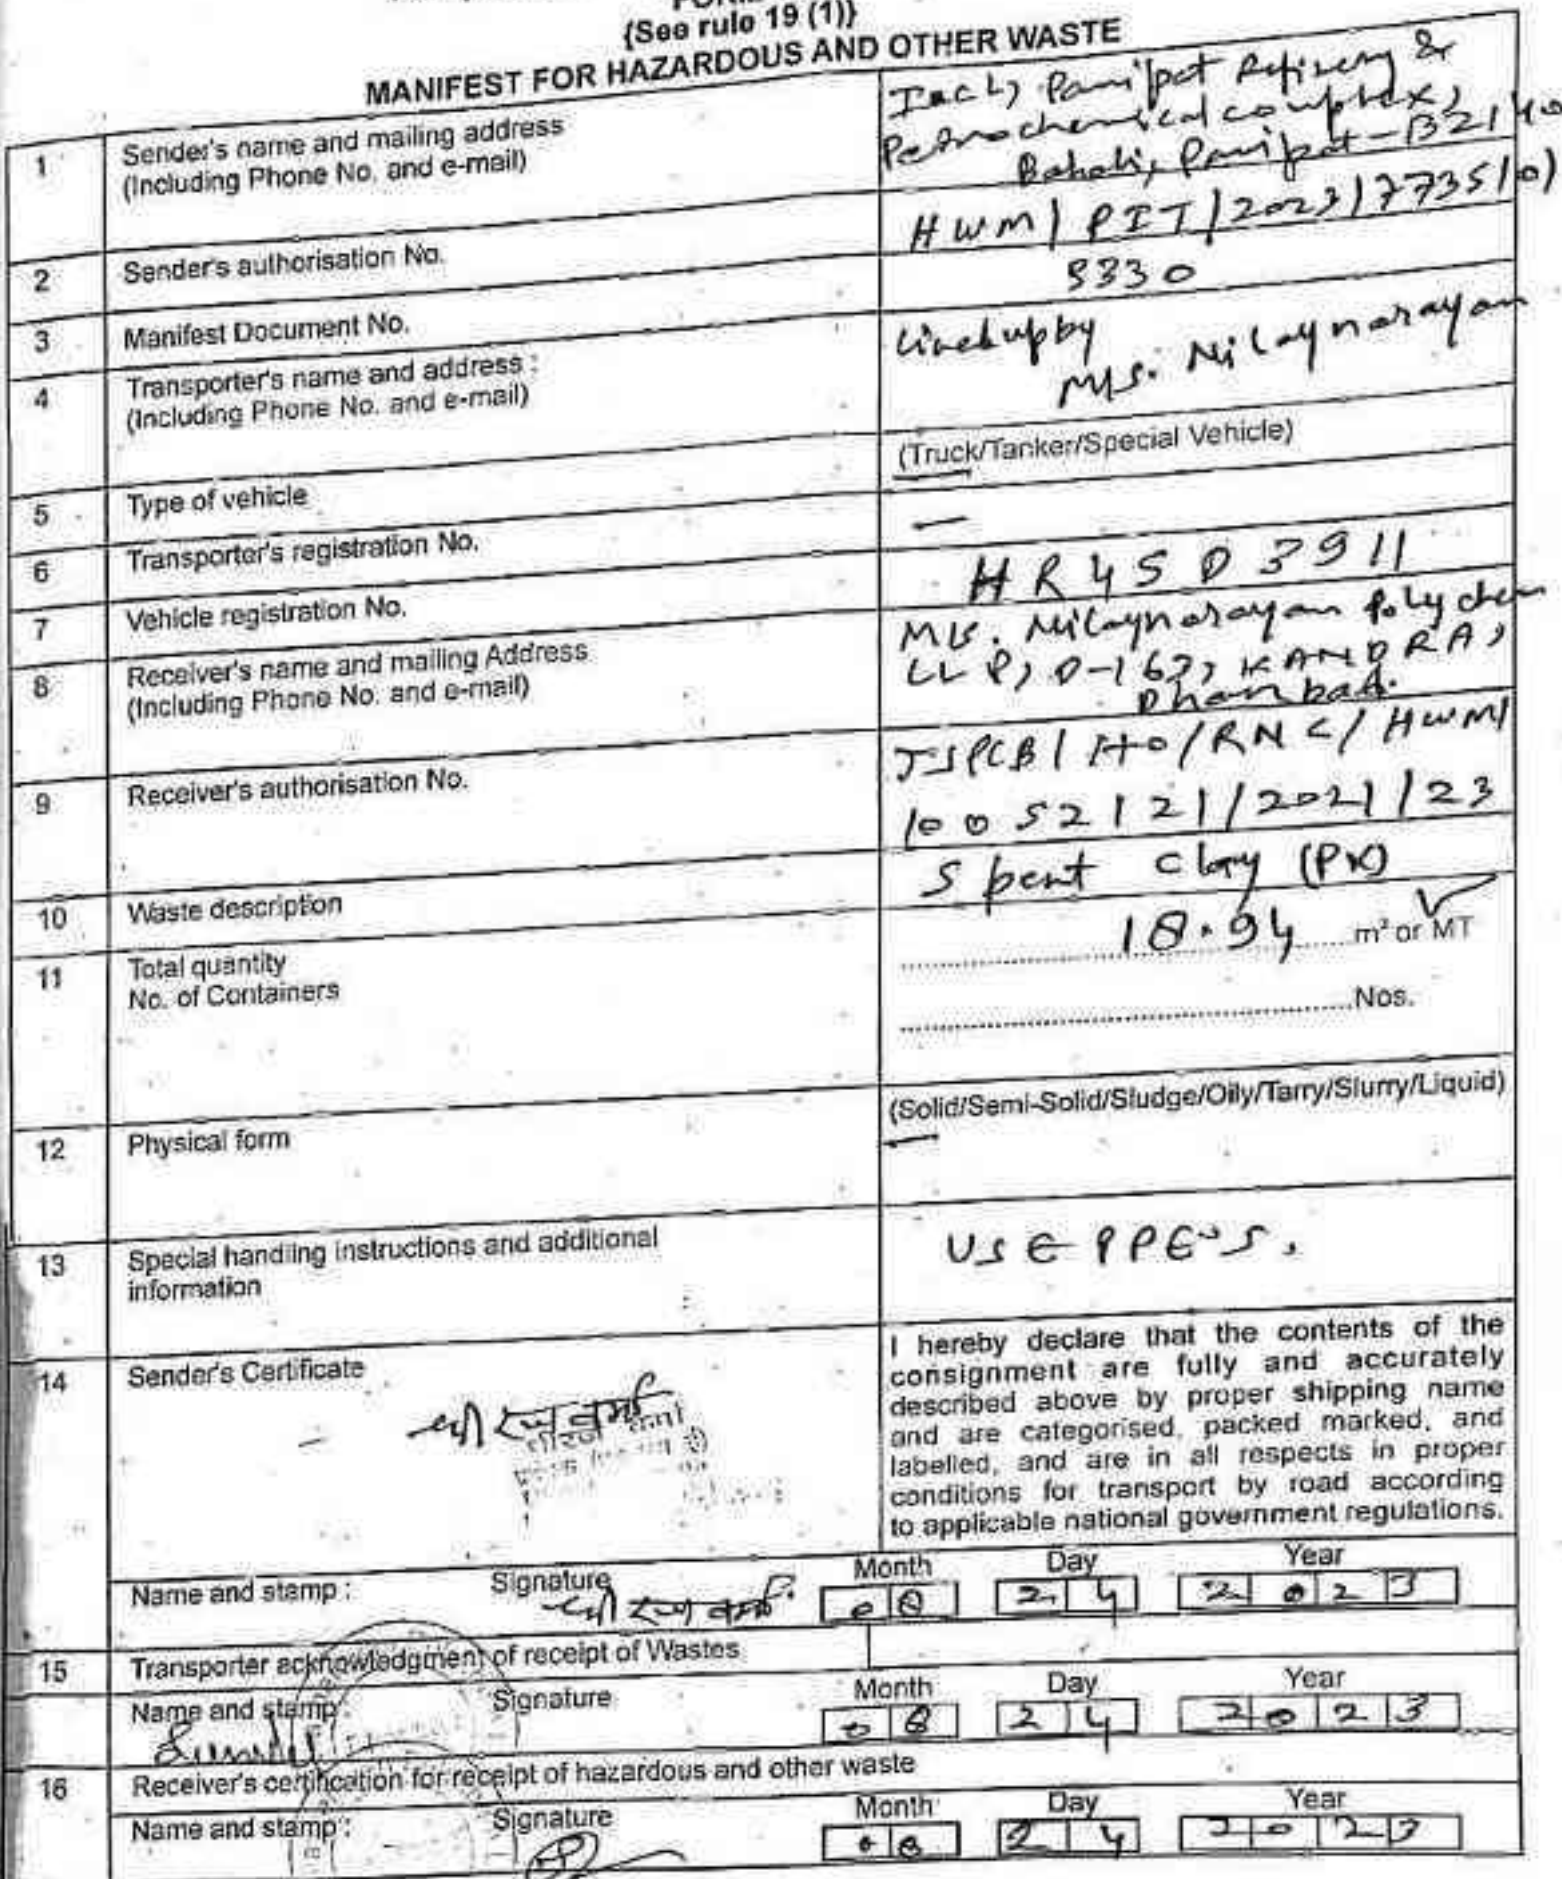 {See rule 19 (1)}
MANIFEST FOR HAZARDOUS AND OTHER WASTE
1 Sender's name and mailing address
(Including Phone No. and e-mail)
Panipat Refinery &
Petrochemical complex,
Baholi, Panipat-
2 Sender's authorisation No.
HWM/PIT/2023/773510)
3 Manifest Document No.
9330
4 Transporter's name and address :
(Including Phone No. and e-mail)
Lined up by
M/S. Nilaynarayan
5 Type of vehicle
(Truck/Tanker/Special Vehicle)
6 Transporter's registration No.
—
7 Vehicle registration No.
HR45D3911
8 Receiver's name and mailing Address
(Including Phone No. and e-mail)
M/S. Nilaynarayan Polychem
LLP, D-163, KANDRA,
Dhanbad.
9 Receiver's authorisation No.
JSPCB/HO/RNC/HWM/
10052121/2021/23
10 Waste description
Spent Clay (PX)
11 Total quantity
18.94 m³ or MT
No. of Containers
Nos.
12 Physical form
(Solid/Semi-Solid/Sludge/Oily/Tarry/Slurry/Liquid)
13 Special handling instructions and additional
information
USE PPE'S.
14 Sender's Certificate
I hereby declare that the contents of the
consignment are fully and accurately
described above by proper shipping name
and are categorised, packed marked, and
labelled, and are in all respects in proper
conditions for transport by road according
to applicable national government regulations.
Name and stamp : Signature Month Day Year
08 24 2023
15 Transporter acknowledgment of receipt of Wastes
Name and stamp: Signature Month Day Year
08 24 2023
16 Receiver's certification for receipt of hazardous and other waste
Name and stamp : Signature Month Day Year
08 24 2023